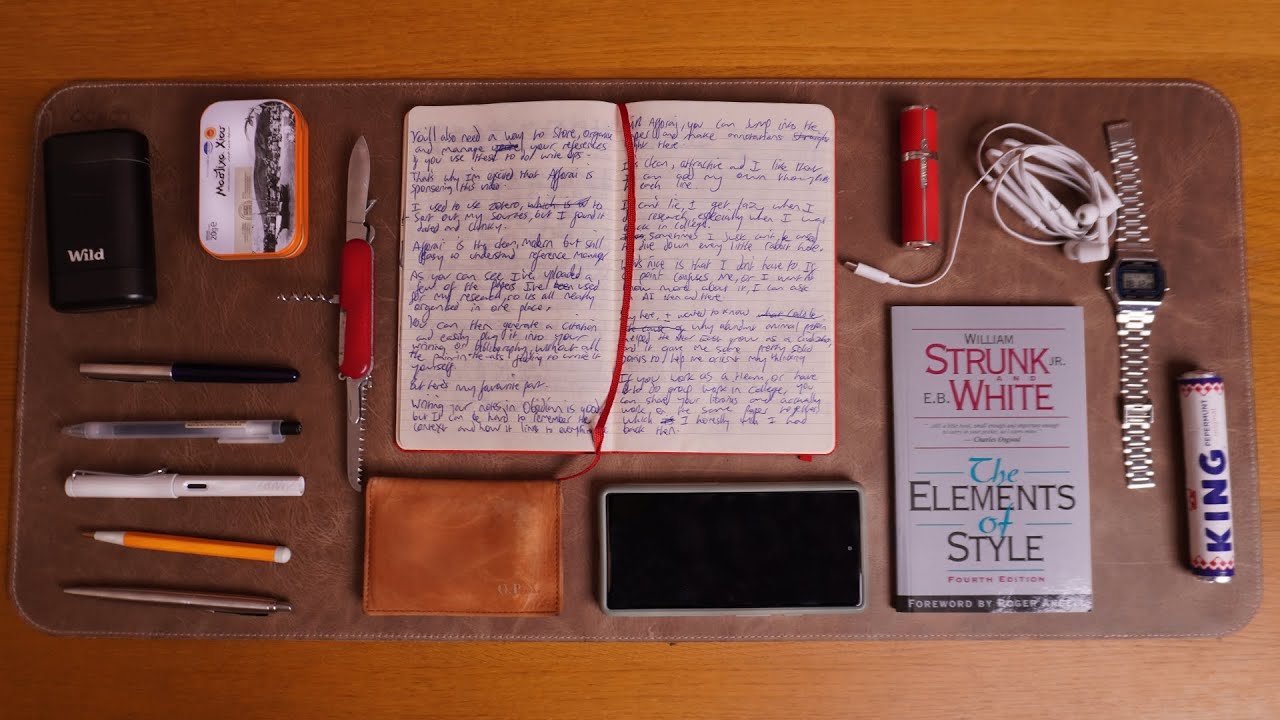 Wild
Μαστίχα Χίου
20g e
You'll also need a way to store, organise
and manage your references
if you use these to do write ups.
That's why I'm excited that Afforai is
sponsoring this video.
I used to use zotero, which is to
sort out my sources, but I found it
dated and clunky.
Afforai is the clean, modern but still
easy to understand reference manager
As you can see I've uploaded a
few of the papers I've been used
for my research, so its all neatly
organised in one place.
You can then generate a citation
and easily plug it into your
writing or bibliography without all
the pain-in-the-ass of having to write it
yourself.
But here's my favourite part.
Writing your notes in Obsidian is good
but it can be hard to remember the
context and how it links to everything
Afforai, you can jump into the
and make annotations straight
right here.
It's clean, attractive and I like that
I can add my own thoughts
each line.
I can't lie, I get lazy when I
do research, especially when I was
back in college.
sometimes I just can't be
to dive down every little rabbit hole.
What's nice is that I don't have to. If
a point confuses me, or I want to
know more about it, I can ask
an AI then and there
Say here, I wanted to know
why abundant animal
helped the grow as a
and it gave me some pretty solid
points to help me orient my thinking
If you work as a team, or have
to do group work in college, you
can share your libraries and actually
work on the same paper
which I honestly wish I had
back then.
O.P.
WILLIAM
STRUNK JR.
AND
E.B. WHITE
"... still a little book, small enough and important enough
to carry in your pocket, as I carry mine."
— Charles Osgood
The
ELEMENTS
of
STYLE
FOURTH EDITION
FOREWORD BY ROGER ANGELL
KING
PEPPERMINT